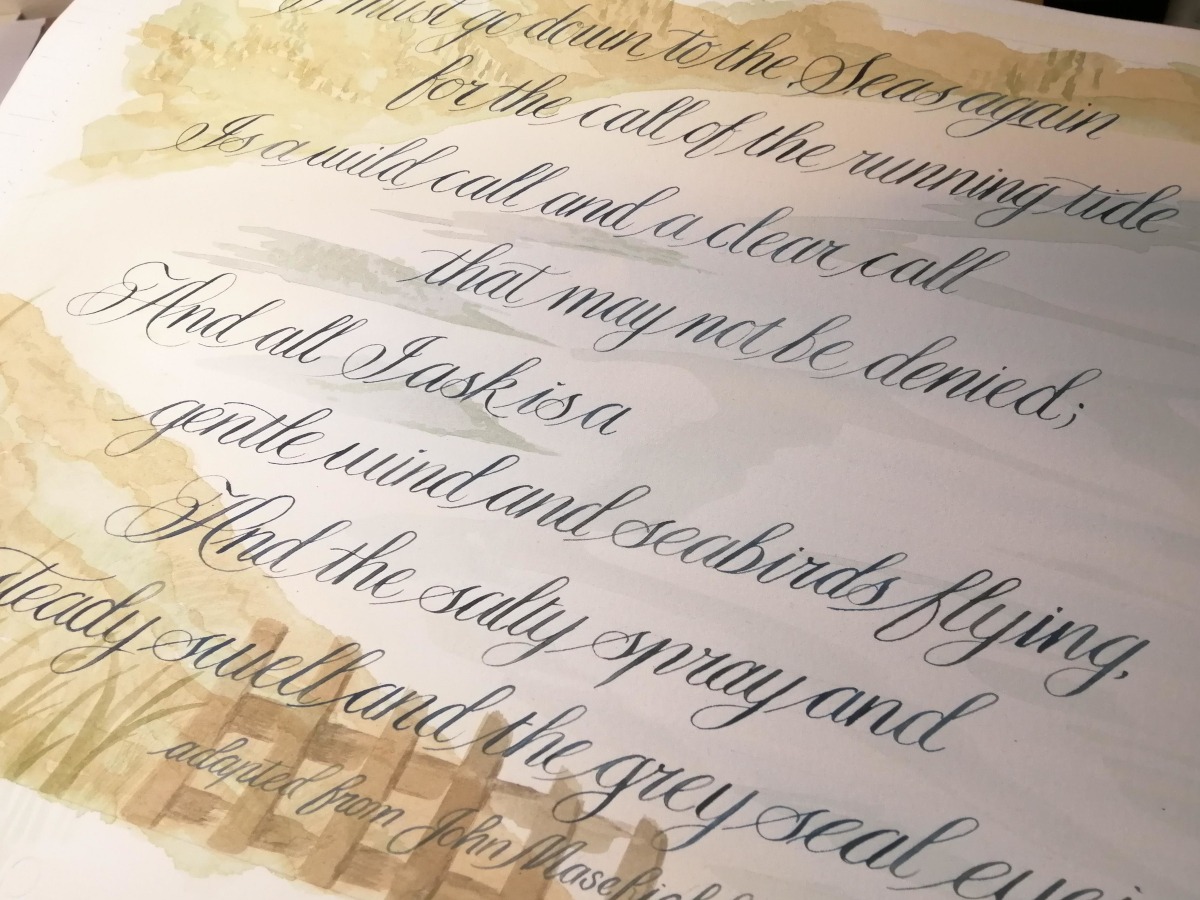 I must go down to the Seas again
for the call of the running tide
Is a wild call and a clear call
that may not be denied;
And all I ask is a
gentle wind and seabirds flying,
And the salty spray and
steady swell and the grey seal
adapted from John Masefield